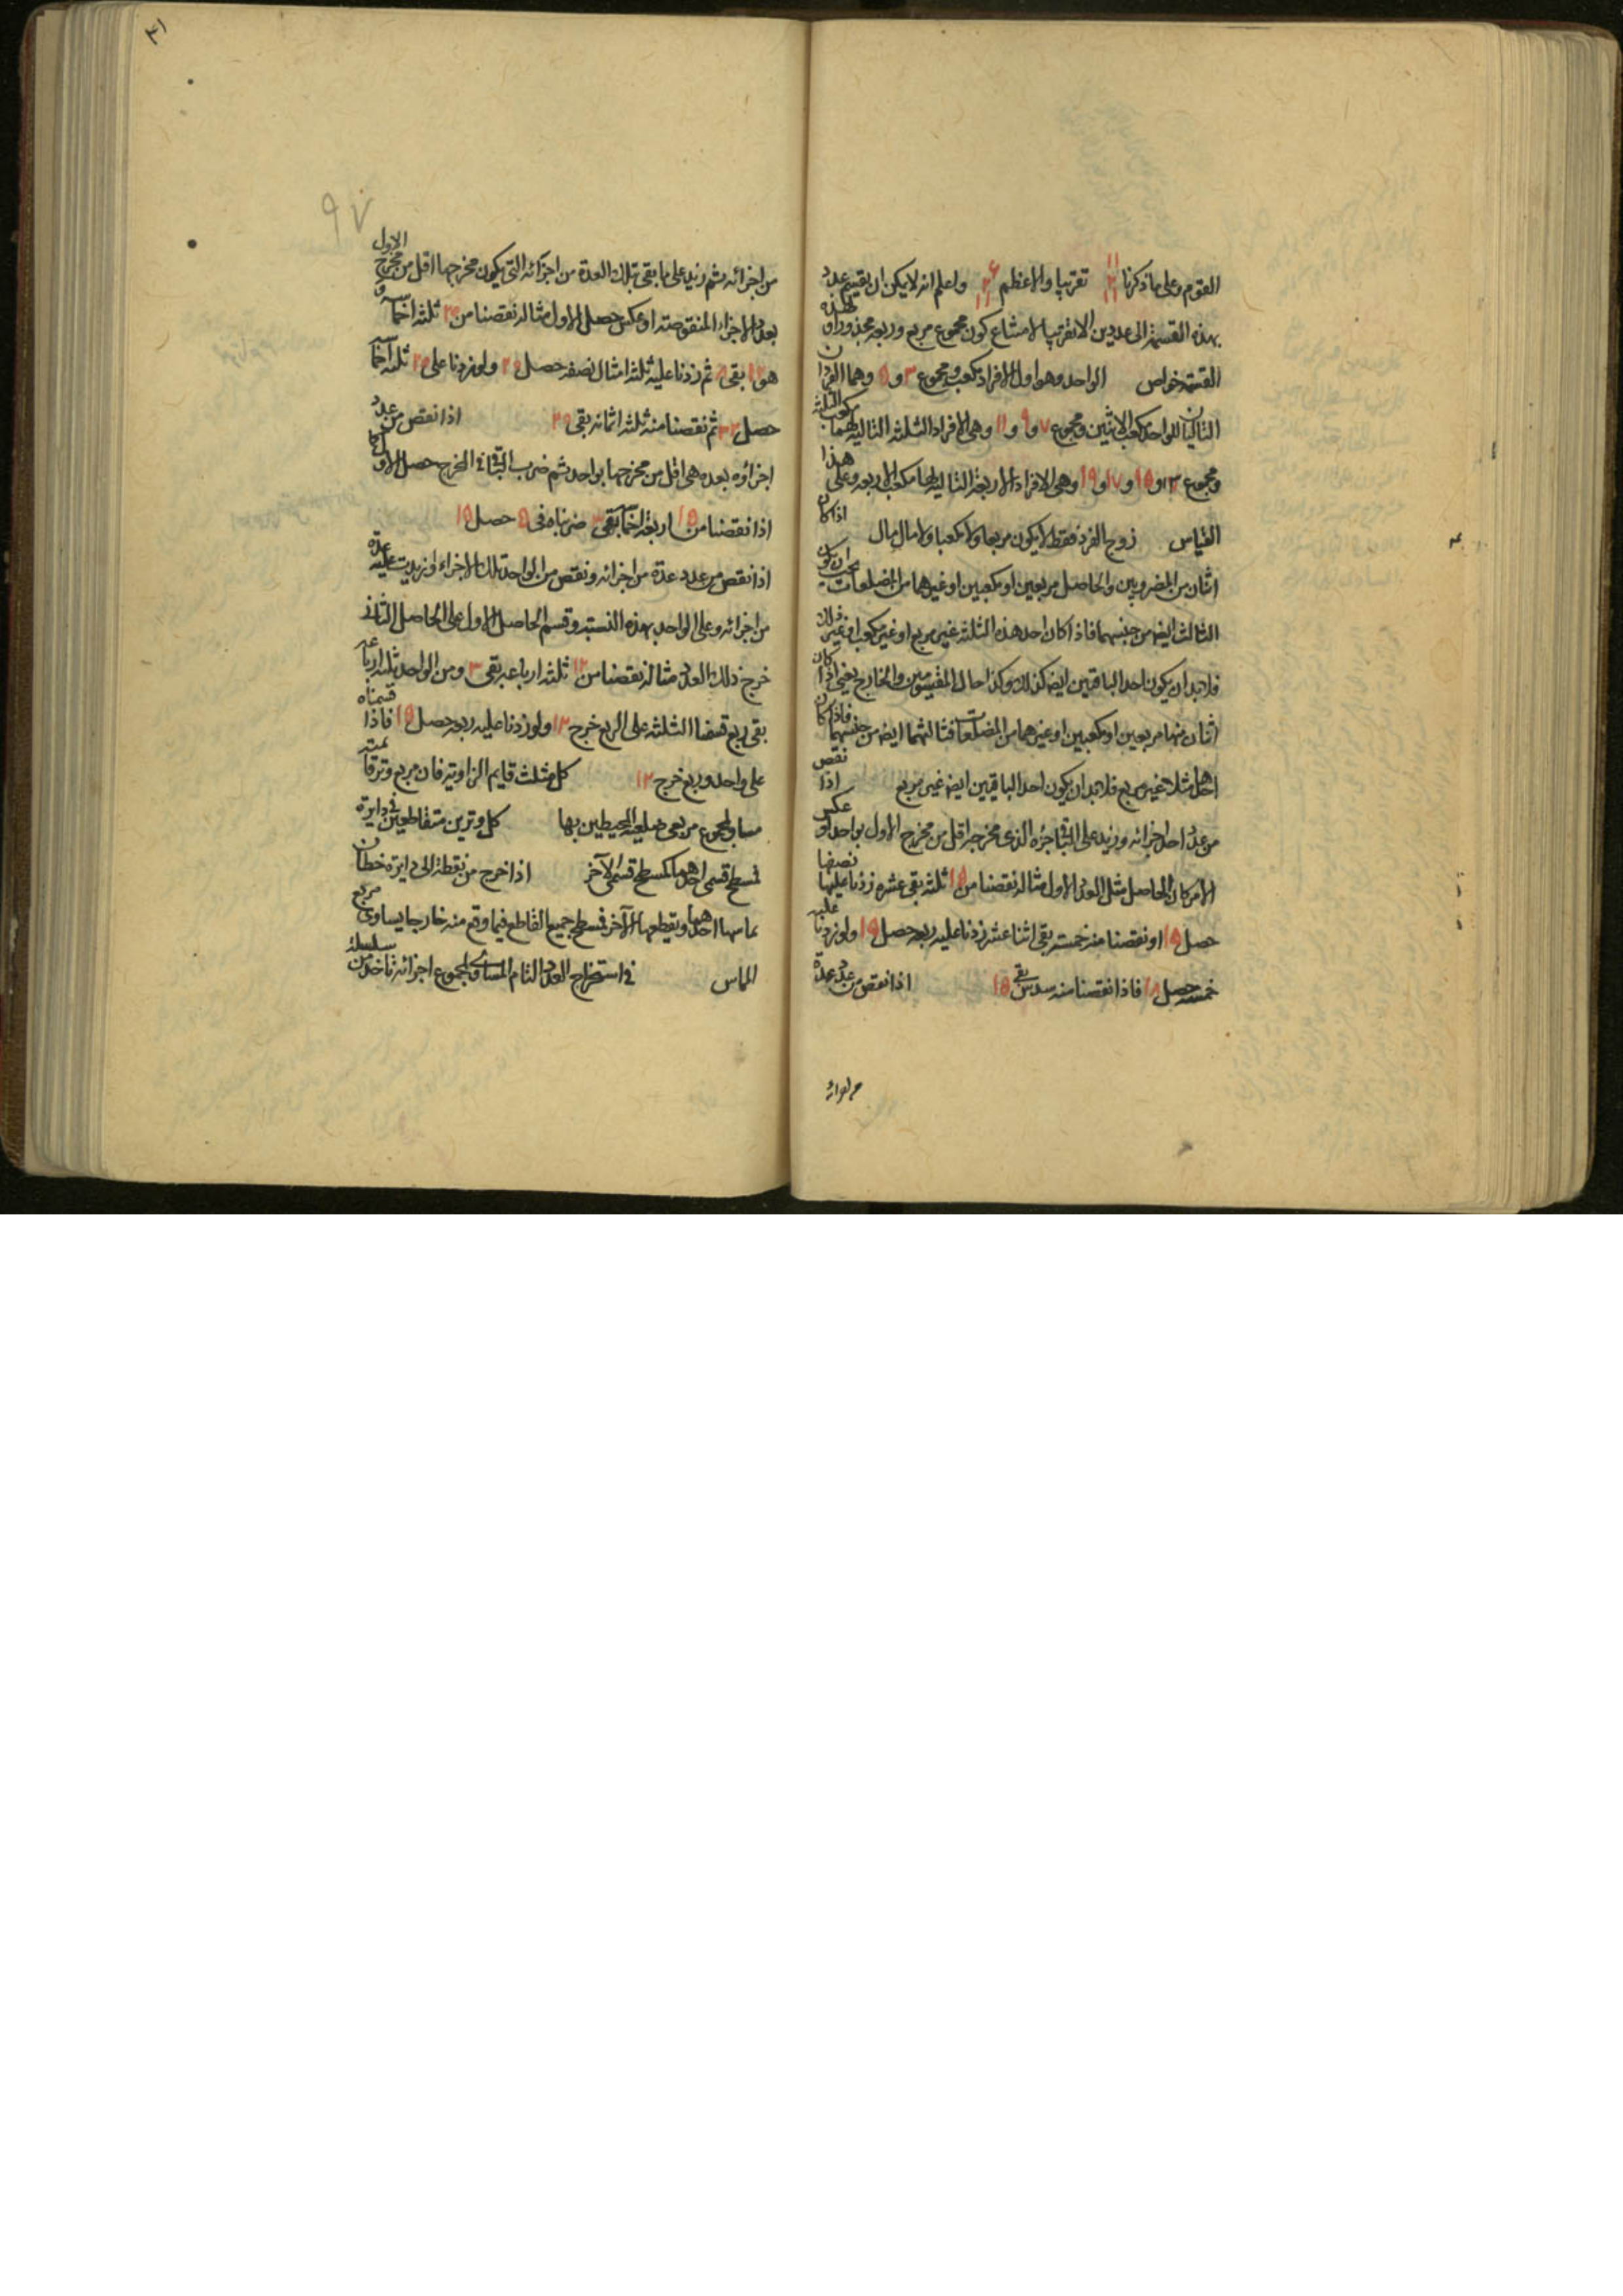 القوم وعلى ما ذكرنا تقريبا والاعظم واعلم انه لا يمكن ان يقسم عدد
بهذه القسمة الى عددين الا تقريبا لامتناع كون مجموع مربع وربعه مجذورا ولهذه
القسمة خواص الواحد وهو اول الافراد مكعب ومجموع ٣ و ٥ وهما الفردان
التاليان للواحد مكعب الاثنين ومجموع ٧ و ٩ و ١١ وهى الافراد الثلثة التالية لهما مكعب الثلثة
ومجموع ١٣ و ١٥ و ١٧ و ١٩ وهى الافراد الاربعة التالية لها مكعب الاربعة وعلى هذا
القياس زوج الفرد فقط لا يكون مربعا ولا مكعبا ولا مال مال اذا كان
اثنان من المضروبين والحاصل مربعين او مكعبين او غيرهما من المضلعات يجب ان يكون
الثالث ايضا من جنسهما فاذا كان احد هذه الثلثة غير مربع او غير مكعب او غير ذلك
فلا بد ان يكون احد الباقيين ايضا كذلك وكذا حال المقسومين والخارج يعنى اذا كان
اثنان منها مربعين او مكعبين او غيرهما من المضلعات فثالثهما ايضا من جنسهما فاذا كان
احدهما مثلا غير مربع فلا بد ان يكون احد الباقيين ايضا غير مربع اذا نقص
من عدد احد اجزائه وزيد على الباقى جزءه الذى مخرجه اقل من مخرج الاول بواحد او عكس
الامر كان الحاصل مثل العدد الاول مثاله نقصنا من ١٥ ثلثه بقى عشرة زدنا عليها نصفها
حصل ١٥ او نقصنا منه خمسه بقى اثنا عشر زدنا عليه ربعه حصل ١٥ ولو زدنا عليه
خمسه حصل ١٨ فاذا نقصنا منه سدس بقى ١٥ اذا نقص من عدد عدة
من اجزائه
٩٧
من اجزائه ثم زيد على ما بقى بتلك العدة من اجزائه التى يكون مخرجها اقل من مخرج الاول
بعدد الاجزاء المنقوصة او عكس حصل الاول مثاله نقصنا من ٢٠ ثلثة اخماسه و
هو ١٢ بقى ٨ ثم زدنا عليه ثلثة امثال نصفه حصل ٢٠ ولو زدنا على ٢٠ ثلثة اخماسه
حصل ٣٢ ثم نقصنا منه ثلثة اثمانه بقى ٢٠ اذا نقص من عدد
اجزاؤه بعدة هى اقل من مخرجها بواحد ثم ضرب الباقى فى المخرج حصل الاول كما
اذا نقصنا من ١٥ اربعة اخماسه بقى ٣ ضربناه فى ٥ حصل ١٥
اذا نقص من عدد عدة من اجزائه ونقص من الواحد تلك الاجزاء او زيدت عليه عدة
من اجزائه وعلى الواحد بهذه النسبة وقسم الحاصل الاول على الحاصل الثانى
خرج ذلك العدد مثاله نقصنا من ١٢ ثلثة ارباعه بقى ٣ ومن الواحد ثلثة ارباعه
بقى ربع قسمنا الثلثة على الربع خرج ١٢ ولو زدنا عليه ربعه حصل ١٥ فاذا قسمناه
على واحد وربع خرج ١٢ كل مثلث قايم الزاوية فان مربع وتر قايمته
مساو لمجموع مربعى ضلعيه المحيطين بها كل وترين متقاطعين فى دايرة
فمسطح قسمى احدهما كمسطح قسمى الآخر اذا خرج من نقطة الى دايرة خطان
يماسها احدهما ويقطعها الآخر فمسطح جميع القاطع فيما وقع منه خارجا يساوى مربع
المماس فى استخراج العدد التام المساوى لمجموع اجزائه تأخذ من سلسلة